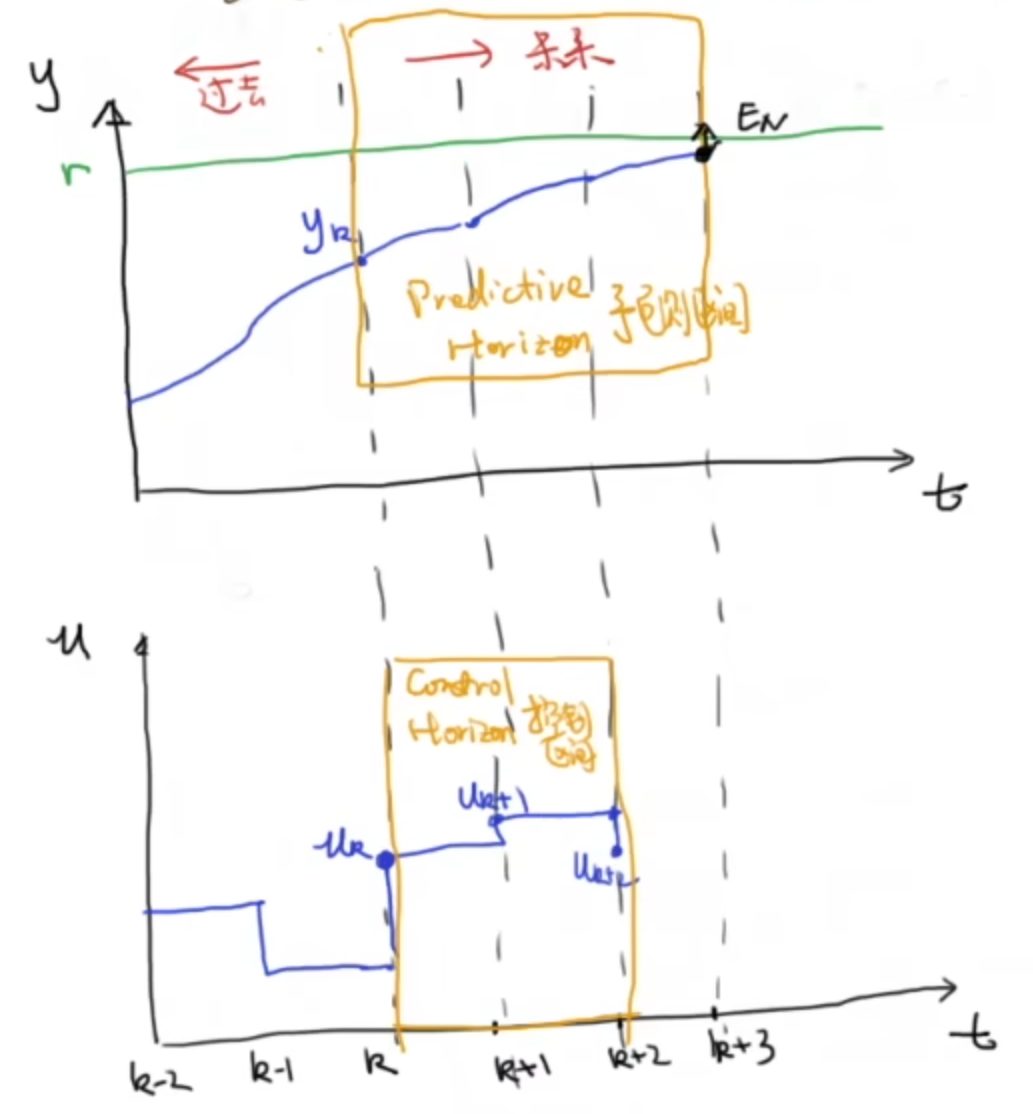 y
过去
未来
E_N
r
y_k
Predictive
Horizon 预测区间
t
u
Control
Horizon 控制
区间
u_{k+1}
u_k
u_{k+2}
k-2
k-1
k
k+1
k+2
k+3
t